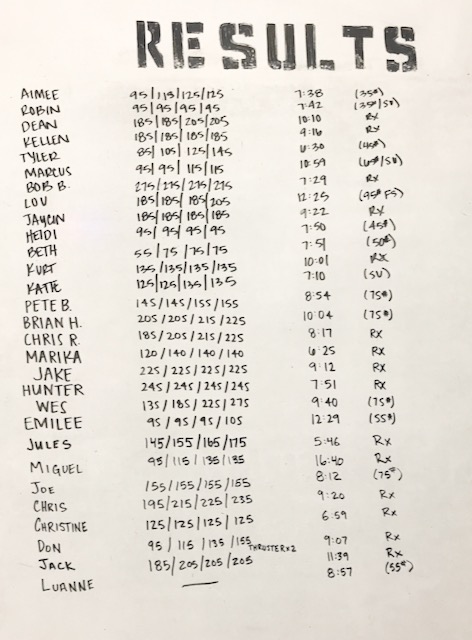 RESULTS
AIMEE 95/115/125/125 7:38 (35#)
ROBIN 95/95/95/95 7:42 (35#/SU)
DEAN 185/185/205/205 10:10 Rx
KELLEN 185/185/185/185 9:16 Rx
TYLER 85/105/125/145 6:30 (45#)
MARCUS 95/95/115/115 10:59 (65#/SU)
BOB B. 275/275/275/275 7:29 Rx
LOU 185/185/185/205 12:25 (95# FS)
JAYCIN 185/185/185/185 9:22 Rx
HEIDI 95/95/95/95 7:50 (45#)
BETH 55/75/75/75 7:51 (50#)
KURT 135/135/135/135 10:01 Rx
KATIE 125/125/135/135 7:10 (SU)
PETE B. 145/145/155/155 8:54 (75#)
BRIAN H. 205/205/215/225 10:04 (75#)
CHRIS R. 185/205/215/225 8:17 Rx
MARIKA 120/140/140/140 6:25 Rx
JAKE 225/225/225/225 9:12 Rx
HUNTER 245/245/245/245 7:51 Rx
WES 135/185/225/275 9:40 (75#)
EMILEE 95/95/95/105 12:29 (55#)
JULES 145/155/165/175 5:46 Rx
MIGUEL 95/115/135/185 16:40 Rx
JOE 155/155/155/155 8:12 (75#)
CHRIS 195/215/225/235 9:20 Rx
CHRISTINE 125/125/125/125 6:59 Rx
DON 95/115/135/155 THRUSTER x2 9:07 Rx
JACK 185/205/205/205 11:39 Rx
LUANNE — 8:57 (55#)